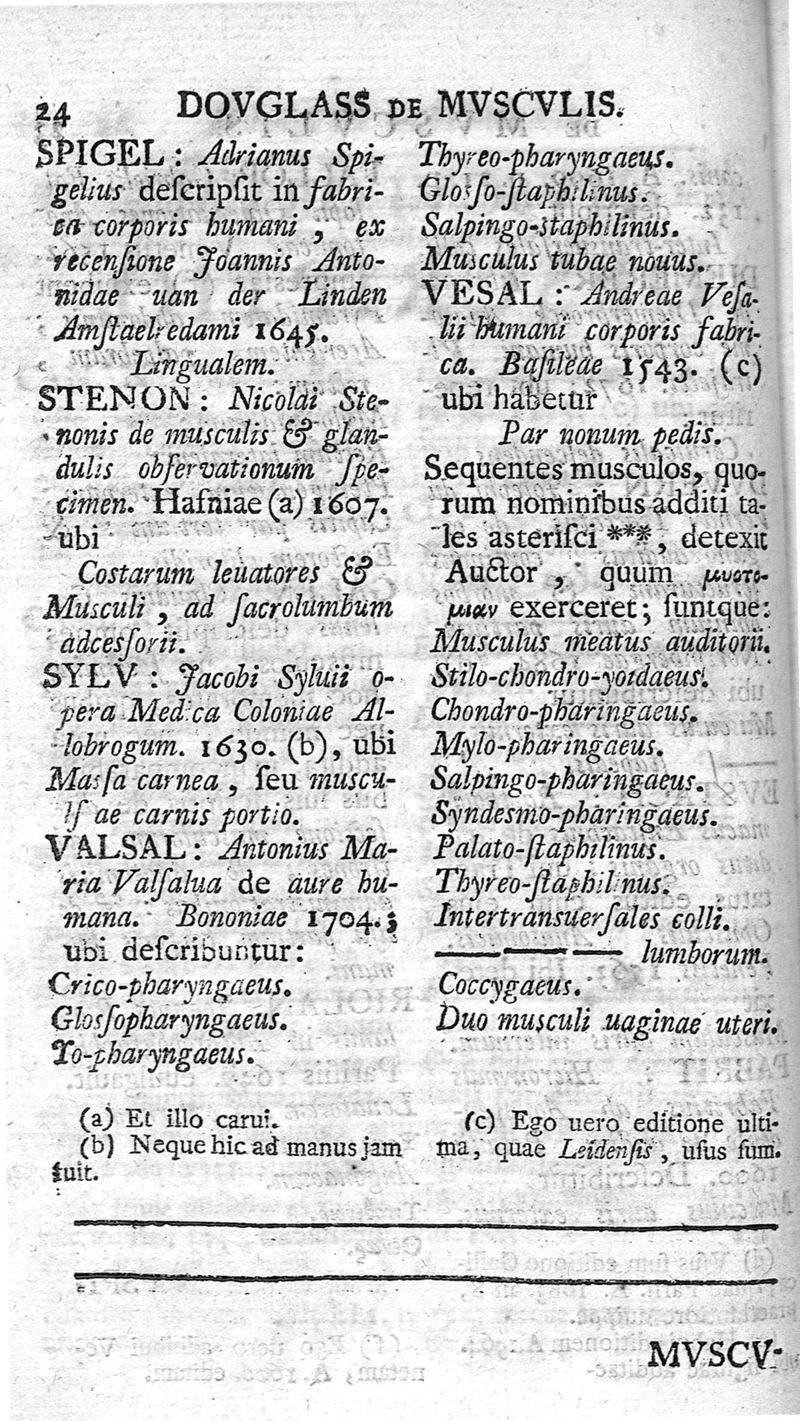 24 DOVGLASS DE MVSCVLIS.
SPIGEL : Adrianus Spi-
gelius deſcripſit in fabri-
ca corporis humani , ex
recenſione Joannis Anto-
nidae uan der Linden
Amſtaelredami 1645.
Lingualem.
STENON : Nicolai Ste-
nonis de musculis & glan-
dulis obſervationum ſpe-
cimen. Hafniae (a) 1607.
ubi
Costarum leuatores &
Musculi , ad ſacrolumbum
adcesſorii.
SYLV : Jacobi Syluii o-
pera Medica Coloniae Al-
lobrogum. 1630. (b), ubi
Masſa carnea , ſeu muscu-
lſ ae carnis portio.
VALSAL : Antonius Ma-
ria Valſalua de aure hu-
mana. Bononiae 1704. ;
ubi deſcribuntur :
Crico-pharyngaeus.
Glosſopharyngaeus.
To-pharyngaeus.
(a) Et illo carui.
(b) Neque hic ad manus jam
fuit.
Thyreo-pharyngaeus.
Glosſo-ſtaphilinus.
Salpingo-staphilinus.
Musculus tubae nouus.
VESAL : Andreae Veſa-
lii humani corporis fabri-
ca. Baſileae 1543. (c)
ubi habetur
Par nonum pedis.
Sequentes musculos, quo-
rum nominibus additi ta-
les asteriſci ***, detexit
Auctor , quum μυοτο-
μιαν exerceret; ſuntque:
Musculus meatus auditorii.
Stilo-chondro-yoidaeus.
Chondro-pharingaeus.
Mylo-pharingaeus.
Salpingo-pharingaeus.
Syndesmo-pharingaeus.
Palato-ſtaphilinus.
Thyreo-ſtaphilinus.
Intertransuerſales colli.
——— lumborum.
Coccygaeus.
Duo musculi uaginae uteri.
(c) Ego uero editione ulti-
ma, quae Leidenſis , uſus ſum.
MVSCV-